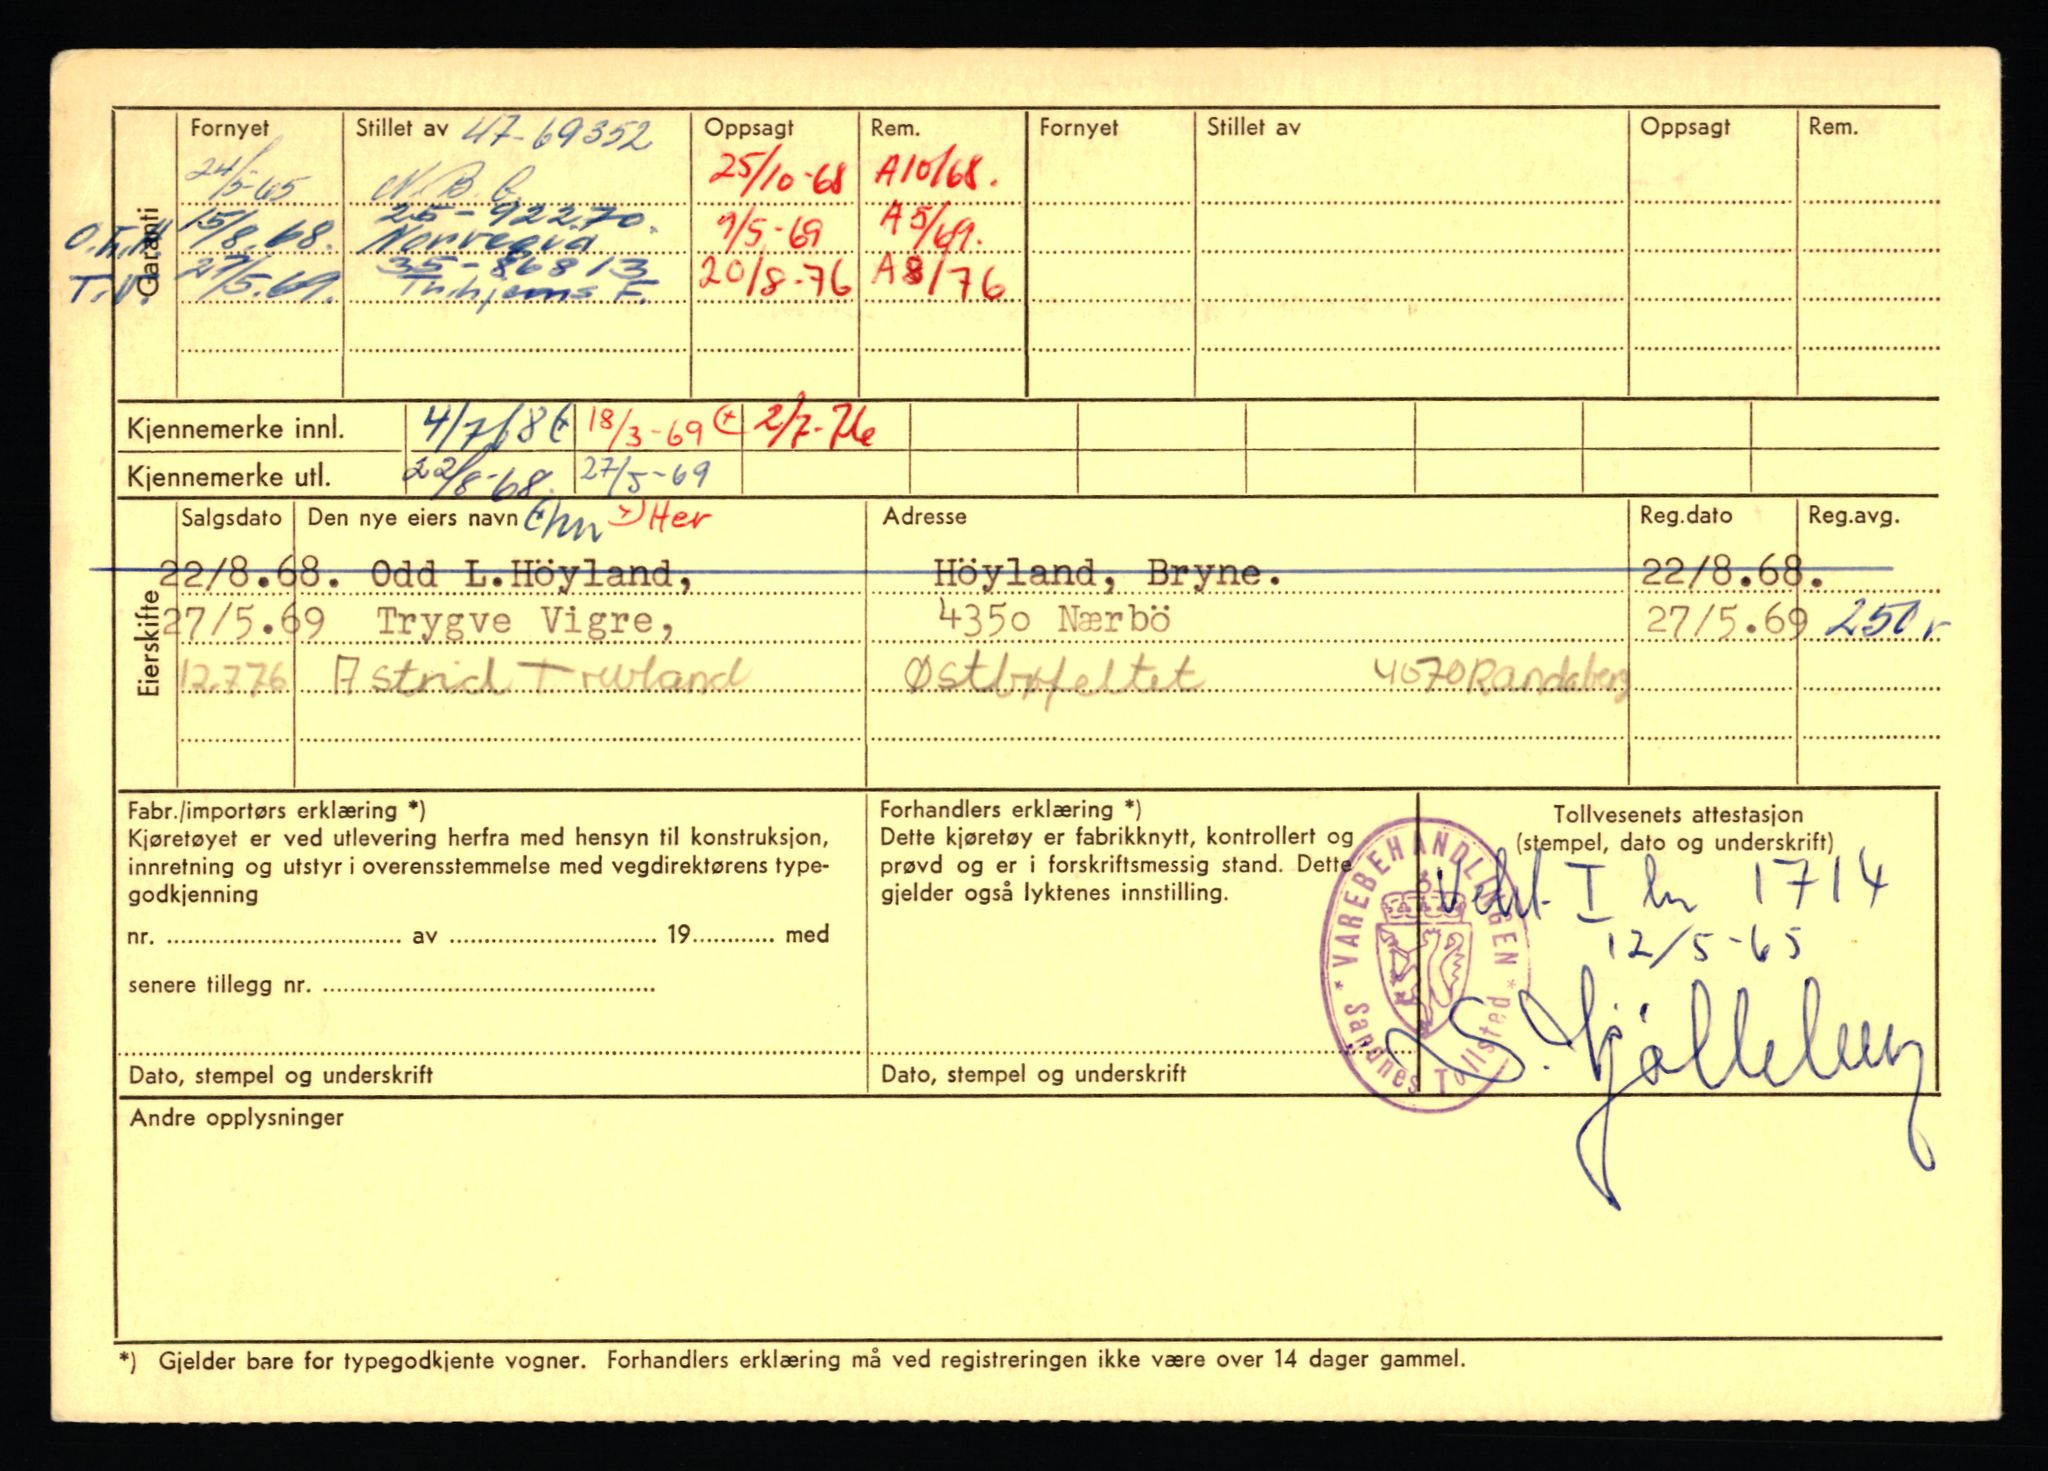 Garanti
Fornyet Stillet av 47-69352 Oppsagt Rem. Fornyet Stillet av Oppsagt Rem.
24/5-65 N.B.C. 25/10-68 A10/68.
25-92270.
O.L.H. 15/8.68. Norvegia 9/5-69 A5/69.
35-86813
T.V. 27/5.69. F. 20/8-76 A8/76
Kjennemerke innl. 4/7/68 18/3-69 2/7-76
Kjennemerke utl. 22/8-68. 27/5-69
Eierskifte
Salgsdato Den nye eiers navn Her Adresse Reg.dato Reg.avg.
22/8.68. Odd L.Höyland, Höyland, Bryne. 22/8.68.
27/5.69 Trygve Vigre, 4350 Nærbö 27/5.69 250
12776 Astrid Østbøfeltet 4070 Randaberg
Fabr./importørs erklæring *)
Kjøretøyet er ved utlevering herfra med hensyn til konstruksjon,
innretning og utstyr i overensstemmelse med vegdirektørens type-
godkjenning
nr. av 19 med
senere tillegg nr.
Dato, stempel og underskrift
Forhandlers erklæring *)
Dette kjøretøy er fabrikknytt, kontrollert og
prøvd og er i forskriftsmessig stand. Dette
gjelder også lyktenes innstilling.
Dato, stempel og underskrift
Tollvesenets attestasjon
(stempel, dato og underskrift)
I 1714
12/5-65
* VAREBEHANDLINGEN *
Sandnes Tollsted
Andre opplysninger
*) Gjelder bare for typegodkjente vogner. Forhandlers erklæring må ved registreringen ikke være over 14 dager gammel.